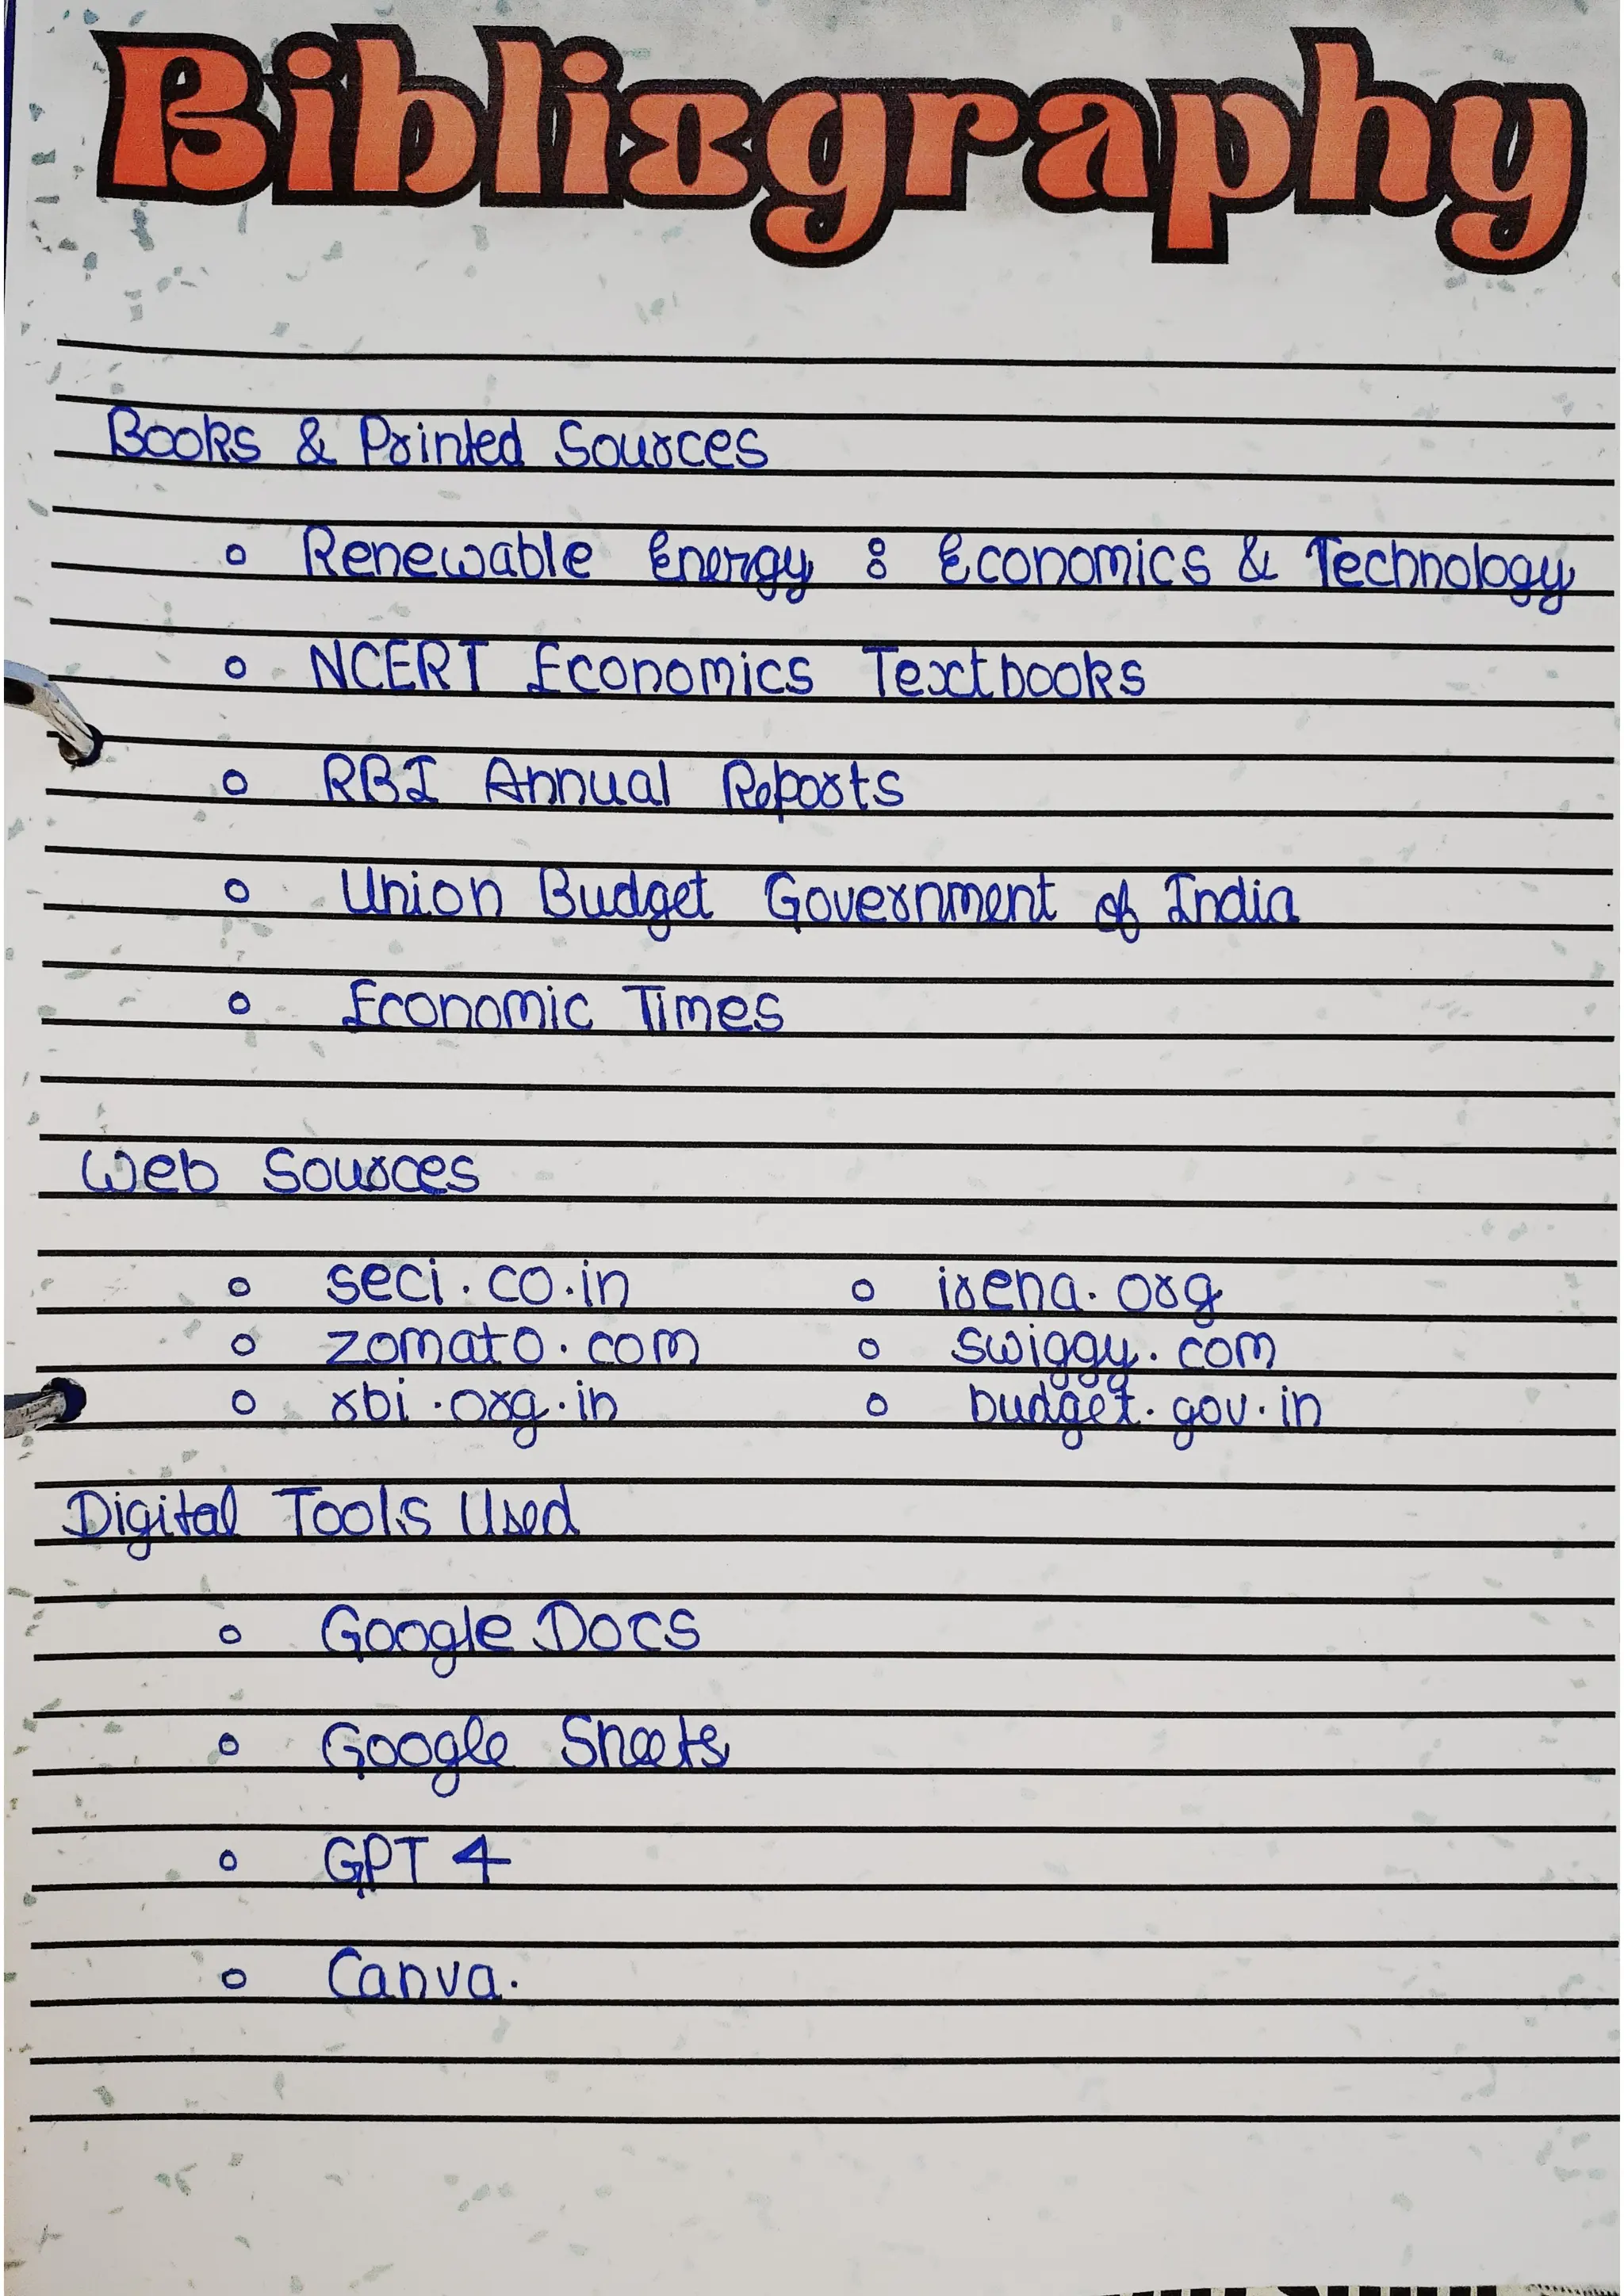 Bibliography
Books & Printed Sources
Renewable Energy : Economics & Technology
NCERT Economics Textbooks
RBI Annual Reports
Union Budget Government of India
Economic Times
Web Sources
seci.co.in irena.org
zomato.com swiggy.com
rbi.org.in budget.gov.in
Digital Tools Used
Google Docs
Google Sheets
GPT 4
Canva.